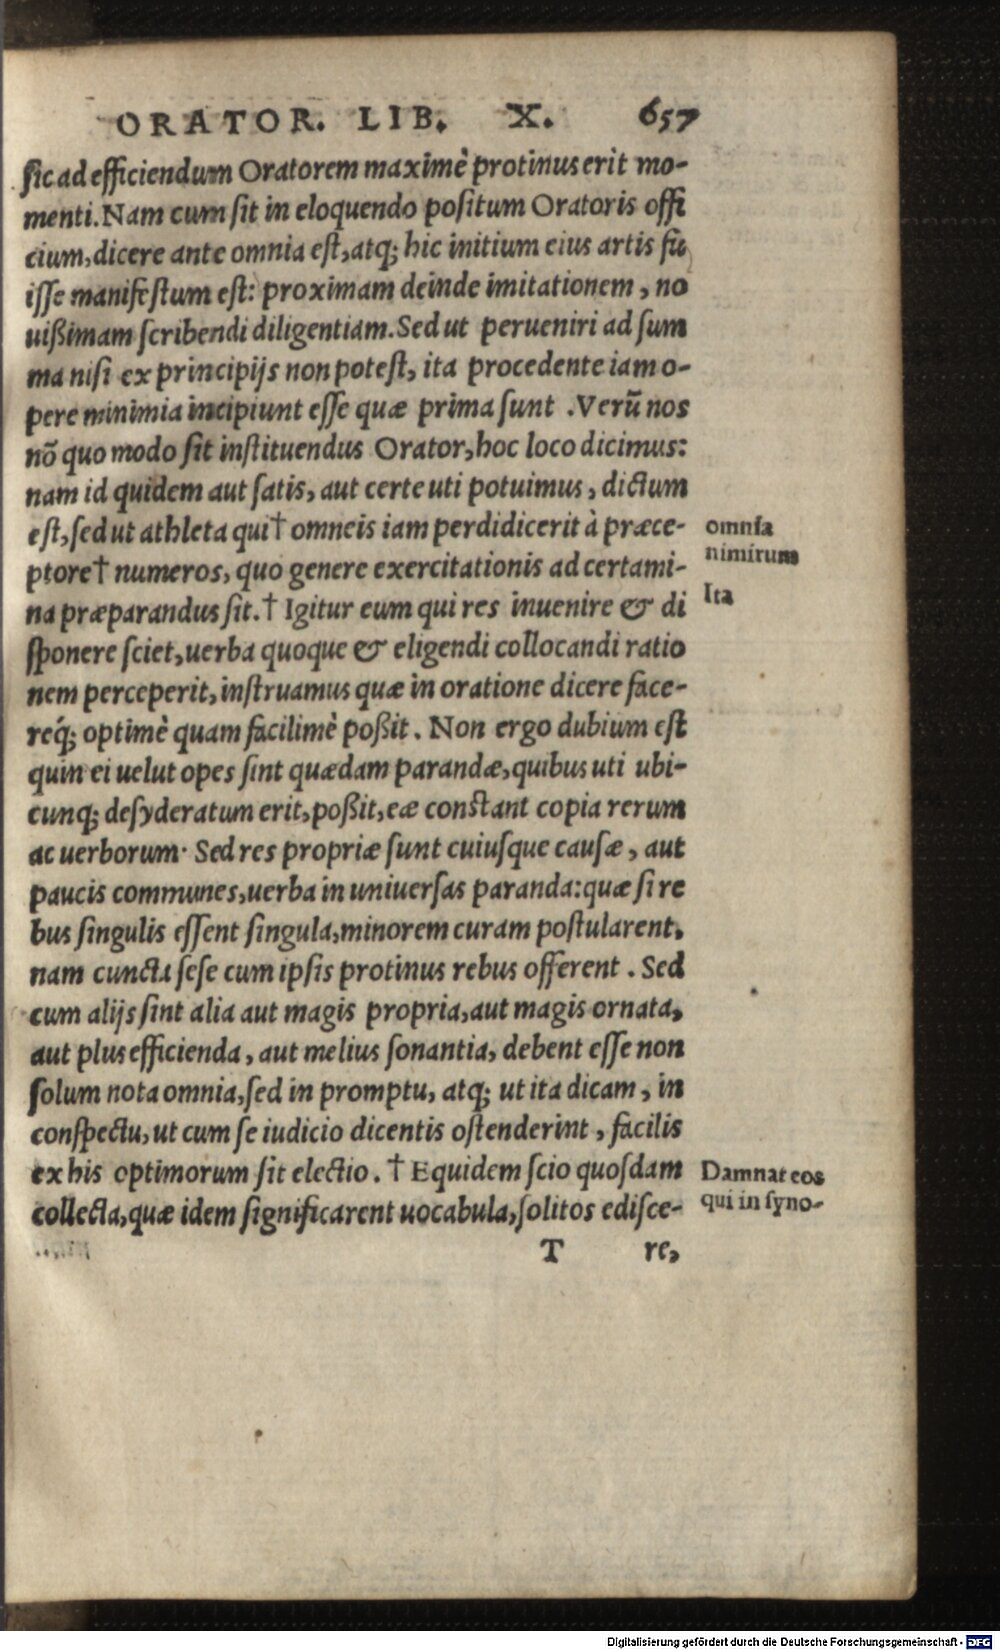 ORATOR. LIB. X. 657
sic ad efficiendum Oratorem maximè protinus erit mo-
menti. Nam cum sit in eloquendo positum Oratoris offi
cium, dicere ante omnia est, atq; hic initium eius artis fu
isse manifestum est: proximam deinde imitationem, no
uißimam scribendi diligentiam. Sed ut perueniri ad sum
ma nisi ex principijs non potest, ita procedente iam o-
pere minimia incipiunt esse quæ prima sunt . Verũ nos
nõ quo modo sit instituendus Orator, hoc loco dicimus:
nam id quidem aut satis, aut certe uti potuimus, dictum
est, sed ut athleta qui† omneis iam perdidicerit à præce-
omnia
ptore† numeros, quo genere exercitationis ad certami-
nimirum
na præparandus sit.† Igitur eum qui res inuenire & di
Ita
sponere sciet, uerba quoque & eligendi collocandi ratio
nem perceperit, instruamus quæ in oratione dicere face-
req́; optimè quam facilimè poßit. Non ergo dubium est
quin ei uelut opes sint quædam parandæ, quibus uti ubi-
cunq; desyderatum erit, poßit, eæ constant copia rerum
ac uerborum· Sed res propriæ sunt cuiusque causæ, aut
paucis communes, uerba in uniuersas paranda: quæ si re
bus singulis essent singula, minorem curam postularent.
nam cuncta sese cum ipsis protinus rebus offerent . Sed
cum alijs sint alia aut magis propria, aut magis ornata,
aut plus efficienda, aut melius sonantia, debent esse non
solum nota omnia, sed in promptu, atq; ut ita dicam, in
conspectu, ut cum se iudicio dicentis ostenderint, facilis
ex his optimorum sit electio. † Equidem scio quosdam
Damnat eos
collecta, quæ idem significarent uocabula, solitos edisce-
qui in syno-
T re,
Digitalisierung gefördert durch die Deutsche Forschungsgemeinschaft - DFG